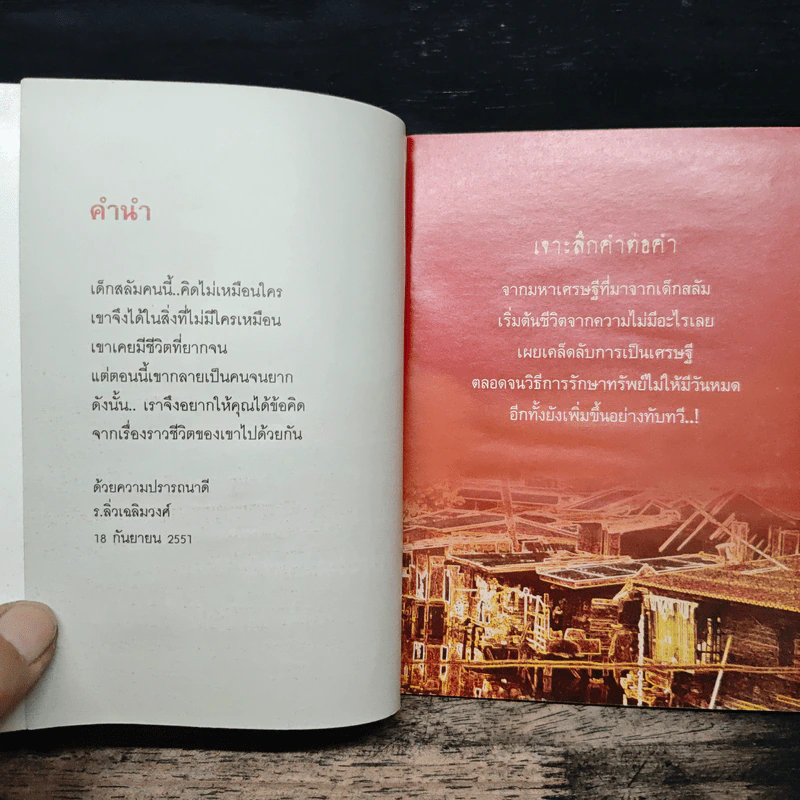 คำนำ
เด็กสลัมคนนี้..คิดไม่เหมือนใคร
เขาจึงได้ในสิ่งที่ไม่มีใครเหมือน
เขาเคยมีชีวิตที่ยากจน
แต่ตอนนี้เขากลายเป็นคนจนยาก
ดังนั้น.. เราจึงอยากให้คุณได้ข้อคิด
จากเรื่องราวชีวิตของเขาไปด้วยกัน
ด้วยความปรารถนาดี
ร.ลิ่วเฉลิมวงศ์
18 กันยายน 2551
เจาะลึกคำต่อคำ
จากมหาเศรษฐีที่มาจากเด็กสลัม
เริ่มต้นชีวิตจากความไม่มีอะไรเลย
เผยเคล็ดลับการเป็นเศรษฐี
ตลอดจนวิธีการรักษาทรัพย์ไม่ให้มีวันหมด
อีกทั้งยังเพิ่มขึ้นอย่างทับทวี..!